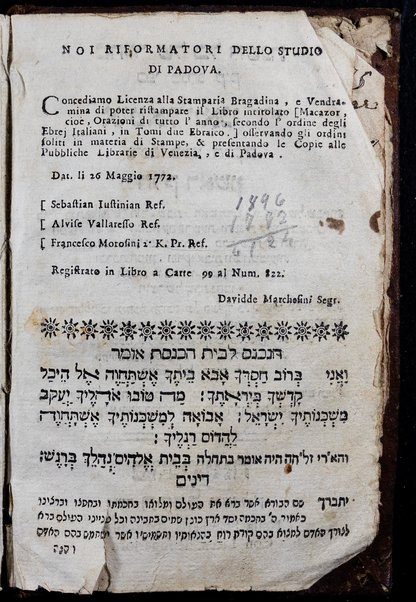 NOI RIFORMATORI DELLO STUDIO
DI PADOVA.
Concediamo Licenza alla Stamparia Bragadina, e Vendra-
mina di poter ristampare il Libro intitolato [Macazor,
cioè, Orazioni di tutto l' anno, secondo l' ordine degli
Ebrej Italiani, in Tomi due Ebraico.] osservando gli ordini
soliti in materia di Stampe, & presentando le Copie alle
Pubbliche Librarie di Venezia, e di Padova.
Dat. li 26 Maggio 1772.
[ Sebastian Iustinian Ref.
1896
[ Alvise Vallaresso Ref.
1772
[ Francesco Morosini 2° K. Pr. Ref.
Registrato in Libro a Carte 99 al Num. 822.
Davidde Marchesini Segr.
הנכנס לבית הכנסת אומר
וַאֲנִי בְּרוֹב חַסְדְּךָ אָבֹא בֵיתֶךָ אֶשְׁתַּחֲוֶה אֶל הֵיכַל
קָדְשְׁךָ בְּיִרְאָתֶךָ: מַה טוֹבוּ אֹהָלֶיךָ יַעֲקֹב
מִשְׁכְּנוֹתֶיךָ יִשְׂרָאֵל: אָבוֹאָה לְמִשְׁכְּנוֹתֶיךָ אֶשְׁתַּחֲוֶה
לַהֲדוֹם רַגְלֶיךָ:
והא״רי זל״הה היה אומר בתחלה בְּבֵית אֱלֹהִים נְהַלֵּךְ בְּרָגֶשׁ:
דינים
יתברך שם הבורא אשר ברא את העולם ומלואו בחכמתו ובחסדו
כאמור ה' בחכמה יסד ארץ כונן שמים בתבונה וכל העולם ברא
לצורך האדם